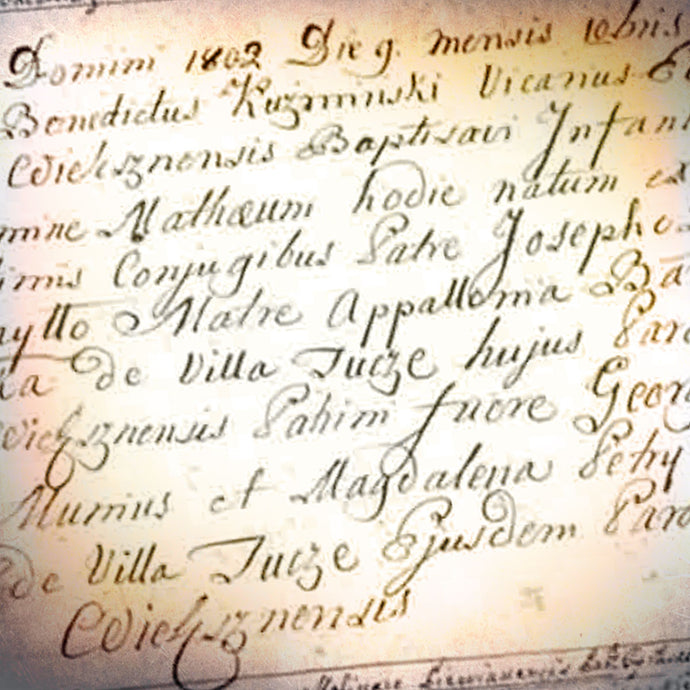 Domini 1802 Die 9. mensis 10bris
Benedictus Kuzminski Vicarius
Wieksznensis Baptisavi Infan
mine Mathæum hodie natum ex
imis Conjugibus Patre Josepho
ytto Matre Appallonia Ba
ka de Villa Tucze hujus Par
Wieksznensis Patrini fuere Georg
Munius et Magdalena Petry
de Villa Tucze Ejusdem Par
Wieksznensis